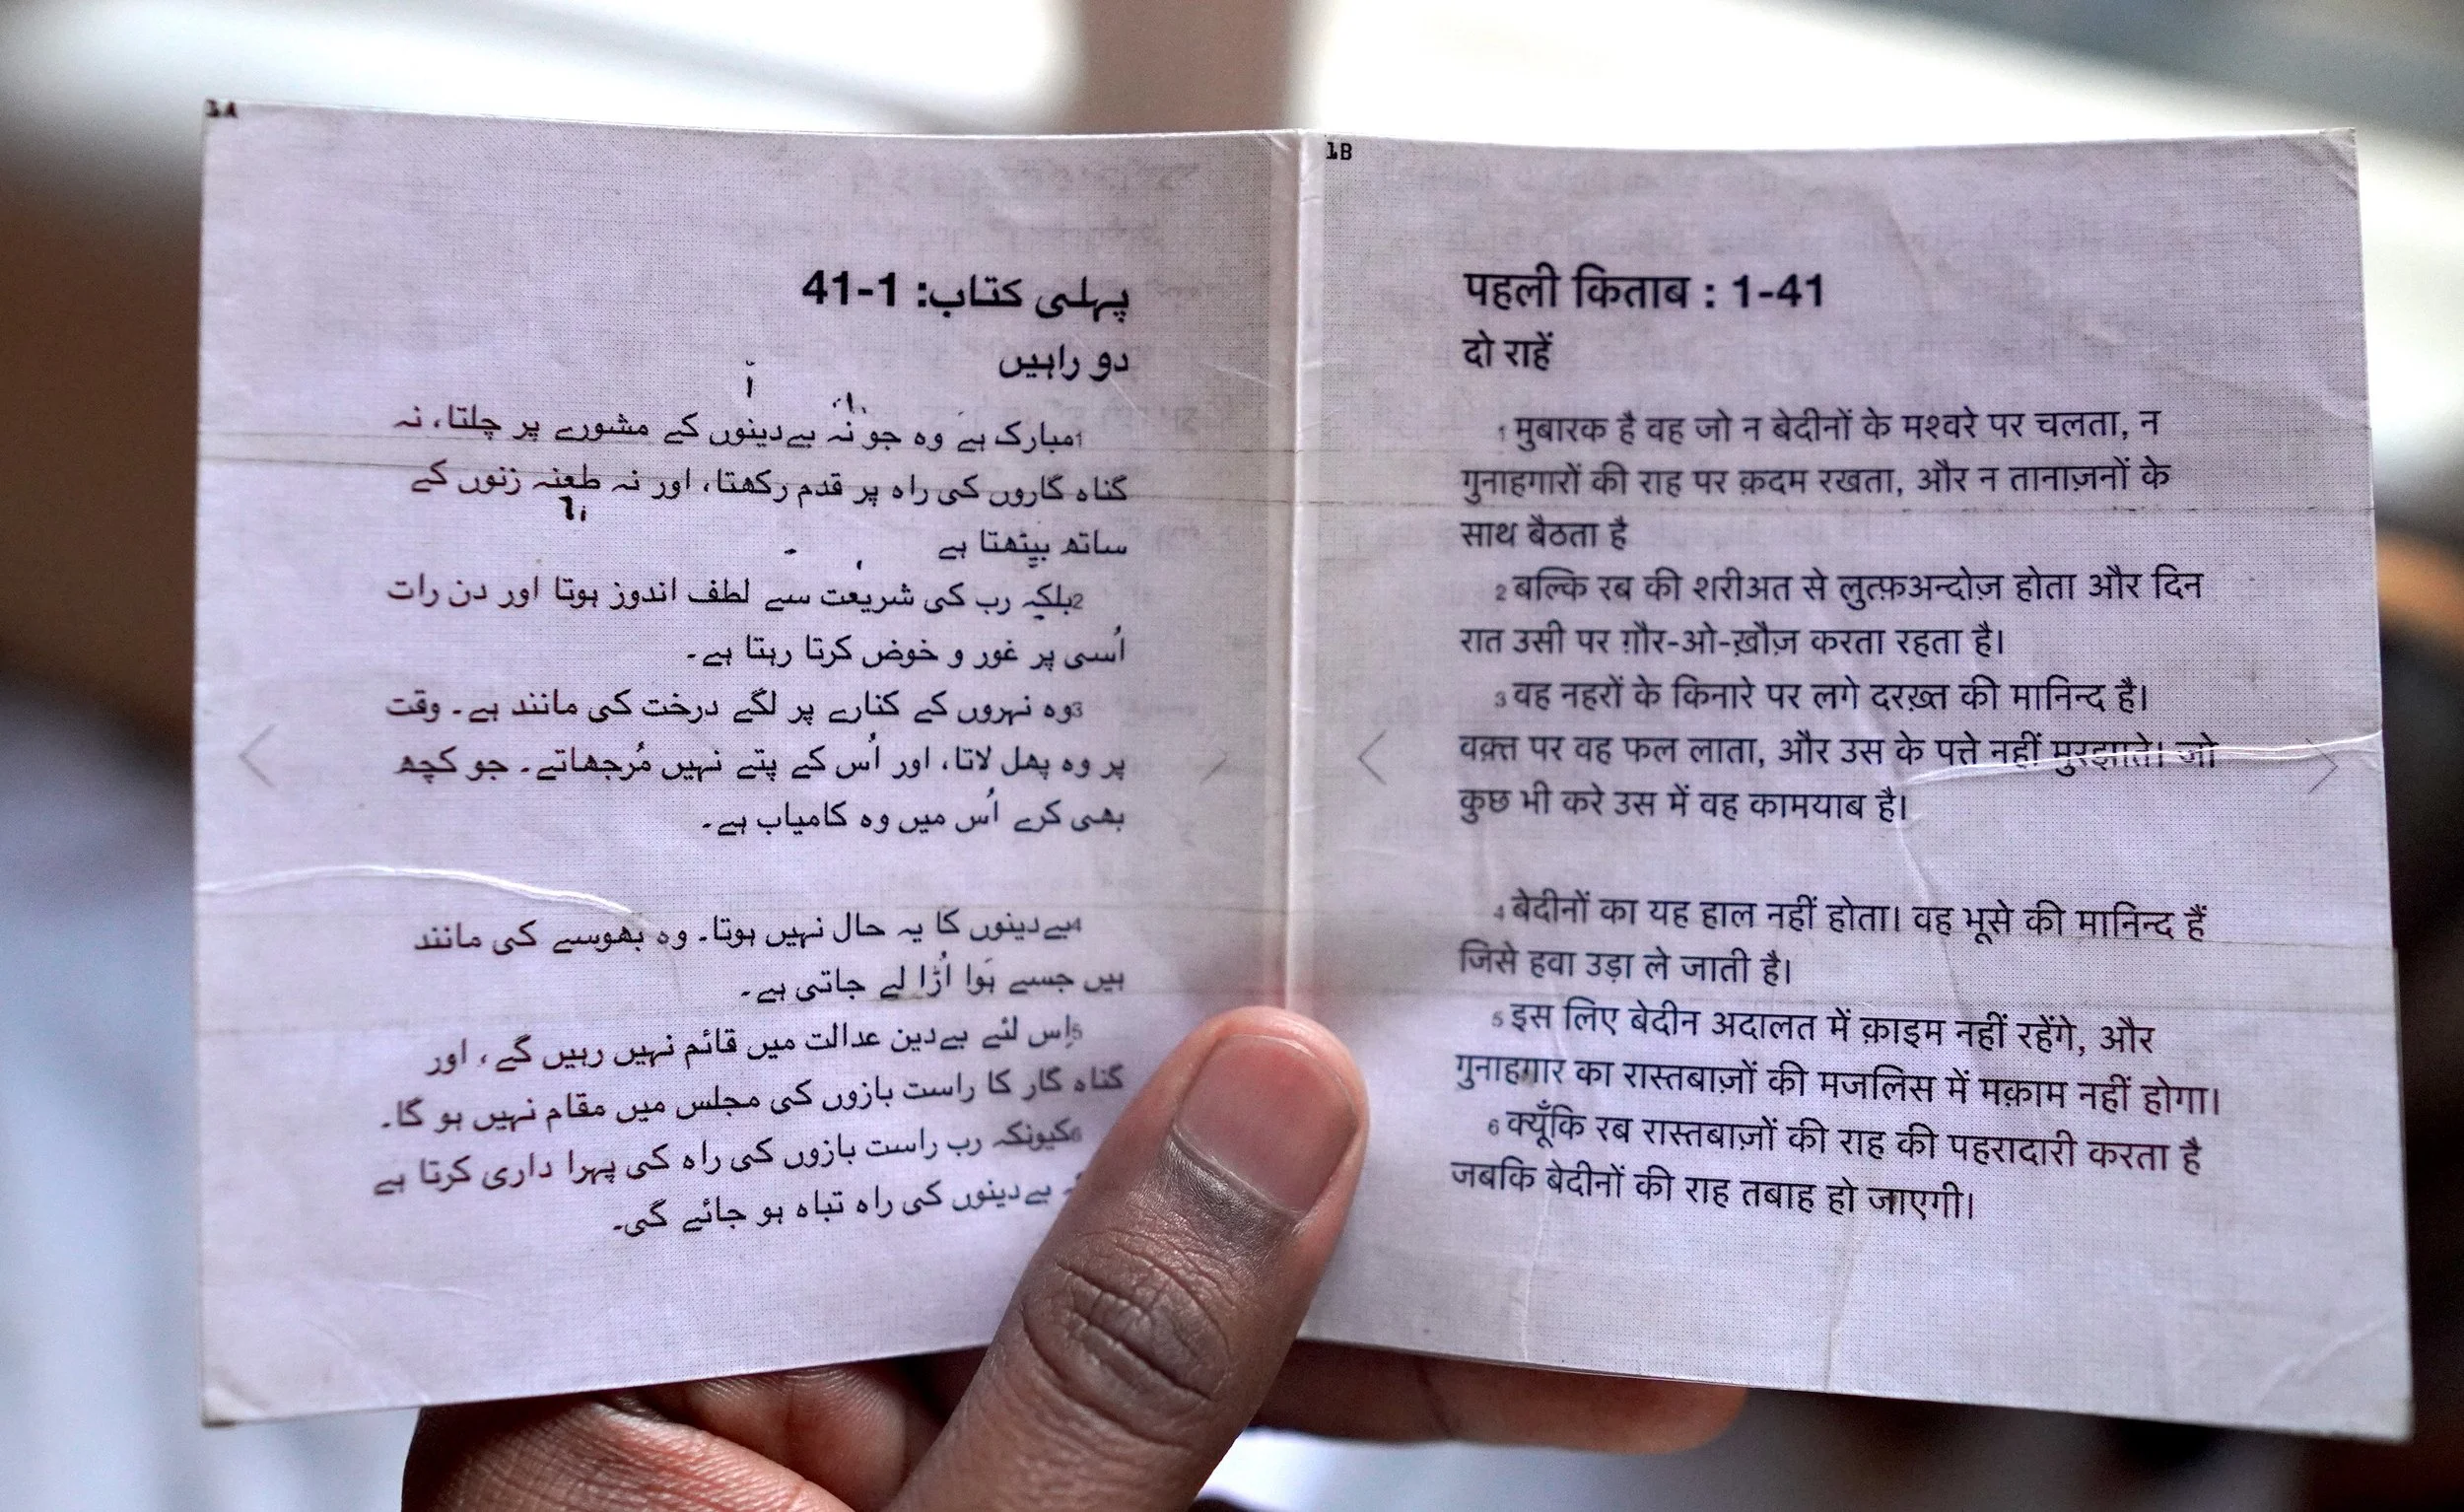 1A
پہلی کتاب: 1-41
دو راہیں
1مبارک ہے وہ جو نہ بےدینوں کے مشورے پر چلتا، نہ
گناہ گاروں کی راہ پر قدم رکھتا، اور نہ طعنہ زنوں کے
ساتھ بیٹھتا ہے
2بلکہ رب کی شریعت سے لطف اندوز ہوتا اور دن رات
اُسی پر غور و خوض کرتا رہتا ہے۔
3وہ نہروں کے کنارے پر لگے درخت کی مانند ہے۔ وقت
پر وہ پھل لاتا، اور اُس کے پتے نہیں مُرجھاتے۔ جو کچھ
بھی کرے اُس میں وہ کامیاب ہے۔
4بےدینوں کا یہ حال نہیں ہوتا۔ وہ بھوسے کی مانند
ہیں جسے ہَوا اُڑا لے جاتی ہے۔
5اِس لئے بےدین عدالت میں قائم نہیں رہیں گے، اور
گناہ گار کا راست بازوں کی مجلس میں مقام نہیں ہو گا۔
6کیونکہ رب راست بازوں کی راہ کی پہرا داری کرتا ہے
بےدینوں کی راہ تباہ ہو جائے گی۔
1B
पहली किताब : 1-41
दो राहें
1 मुबारक है वह जो न बेदीनों के मश्वरे पर चलता, न
गुनाहगारों की राह पर क़दम रखता, और न तानाज़नों के
साथ बैठता है
2 बल्कि रब की शरीअत से लुत्फ़अन्दोज़ होता और दिन
रात उसी पर ग़ौर-ओ-ख़ौज़ करता रहता है।
3 वह नहरों के किनारे पर लगे दरख़्त की मानिन्द है।
वक़्त पर वह फल लाता, और उस के पत्ते नहीं मुरझाते। जो
कुछ भी करे उस में वह कामयाब है।
4 बेदीनों का यह हाल नहीं होता। वह भूसे की मानिन्द हैं
जिसे हवा उड़ा ले जाती है।
5 इस लिए बेदीन अदालत में क़ाइम नहीं रहेंगे, और
गुनाहगार का रास्तबाज़ों की मजलिस में मक़ाम नहीं होगा।
6 क्यूँकि रब रास्तबाज़ों की राह की पहरादारी करता है
जबकि बेदीनों की राह तबाह हो जाएगी।